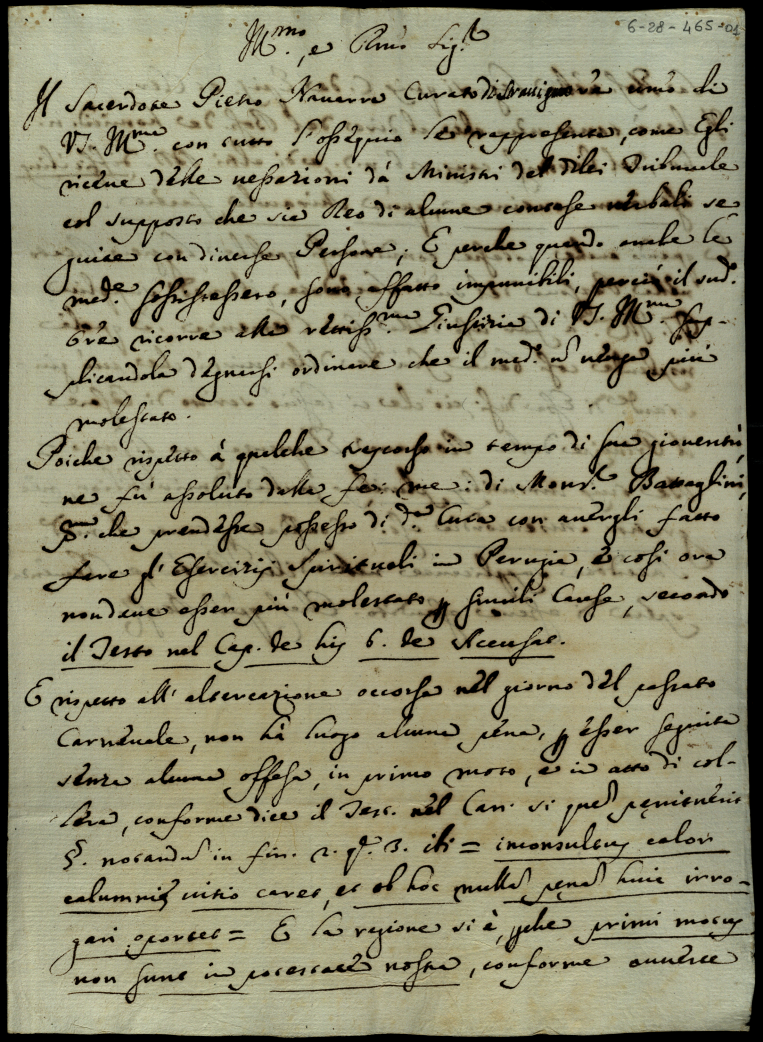 6-28-465-01
Ill.mo, e Rmo Sig.r
Il Sacerdote Pietro Nauarra Curato di umo di
VS. Ill.ma con tutto l'ossequio le rappresenta, come Egli
riceue delle uessazioni dà Ministri del di lei Tribunale
col supposto che sia Reo di alcune contese uerbali se
guite con diuerse Persone; E perche quando anche le
med.e sossistessero, sono affatto impunibili, perciò il sud.
Ore ricorre alla rettiss.ma Giustizia di VS. Ill.ma sup-
plicandola degnarsi ordinare che il med.o nō uenga più
molestato.
Poiche rispetto à qualche trascorso in tempo di sua giouentù,
ne fù assoluto dalla fe: me: di Mons.r Battaglini,
p.ma che prendesse possesso di d.a Cura con auergli fatto
fare gl'Esercizij Spirituali in Perugia, e così ora
non deue esser più molestato p simili Cause, secondo
il Testo nel Cap. de his 6. de Accusat.
E rispetto all'altercazione occorsa nel giorno del passato
Carneuale, non hà luogo alcuna pena, p esser seguita
senza alcuna offesa, in primo moto, e in atto di col-
lera, conforme dice il Test. nel Can. si quis penitus
§. notandū in fin. 2. q. 3. ibi = inconsultus calor
calumnię uitio caret, et ob hoc nullā pęnā huic irro-
gari oportet = E la regione si è, pche primi motus
non sunt in potestate nostra, conforme auuerte